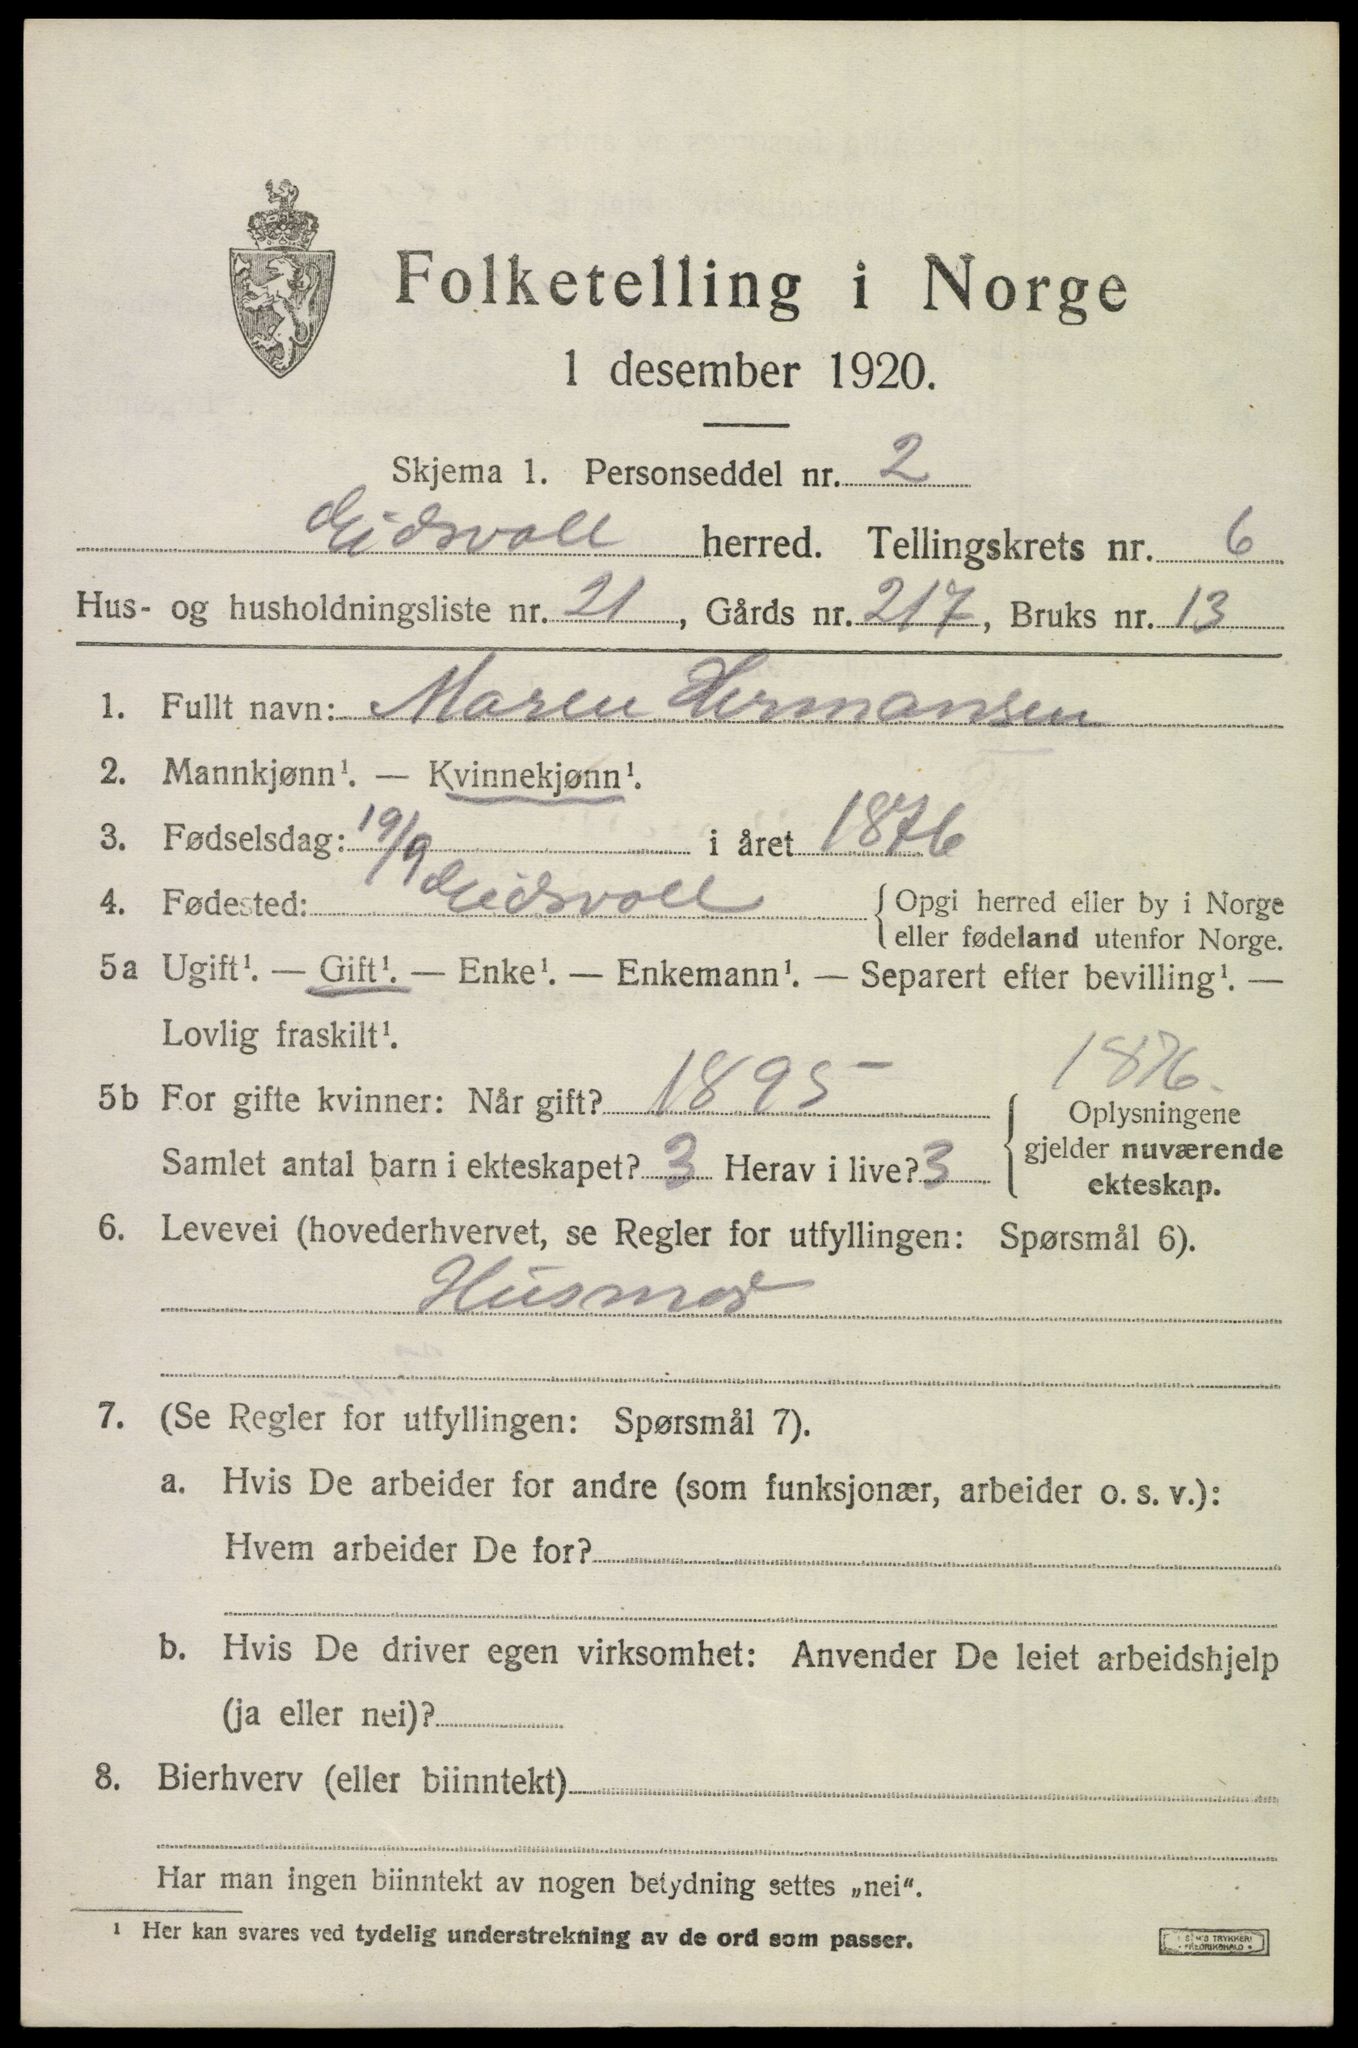 Folketelling i Norge
1 desember 1920.
Skjema 1. Personseddel nr. 2
Eidsvoll herred. Tellingskrets nr. 6
Hus- og husholdningsliste nr. 21, Gårds nr. 217, Bruks nr. 13
1. Fullt navn: Maren Hermansen
2. Mannkjønn¹. — Kvinnekjønn¹.
3. Fødselsdag: 19/9 i året 1876
4. Fødested: Eidsvoll { Opgi herred eller by i Norge
eller fødeland utenfor Norge.
5a Ugift¹. — Gift¹. — Enke¹. — Enkemann¹. — Separert efter bevilling¹. —
Lovlig fraskilt¹.
1876.
5b For gifte kvinner: Når gift? 1895 – { Oplysningene
gjelder nuværende
Samlet antal barn i ekteskapet? 3 Herav i live? 3
ekteskap.
6. Levevei (hovederhvervet, se Regler for utfyllingen: Spørsmål 6).
Husmor
7. (Se Regler for utfyllingen: Spørsmål 7).
a. Hvis De arbeider for andre (som funksjonær, arbeider o. s. v.):
Hvem arbeider De for?
b. Hvis De driver egen virksomhet: Anvender De leiet arbeidshjelp
(ja eller nei)?
8. Bierhverv (eller biinntekt)
Har man ingen biinntekt av nogen betydning settes „nei“.
¹ Her kan svares ved tydelig understrekning av de ord som passer.
TRYKKERI
FREDRIKSHALD